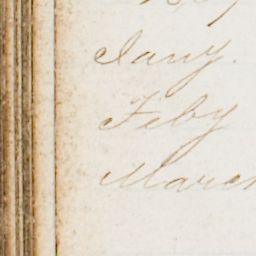 Jany.
Feby
March